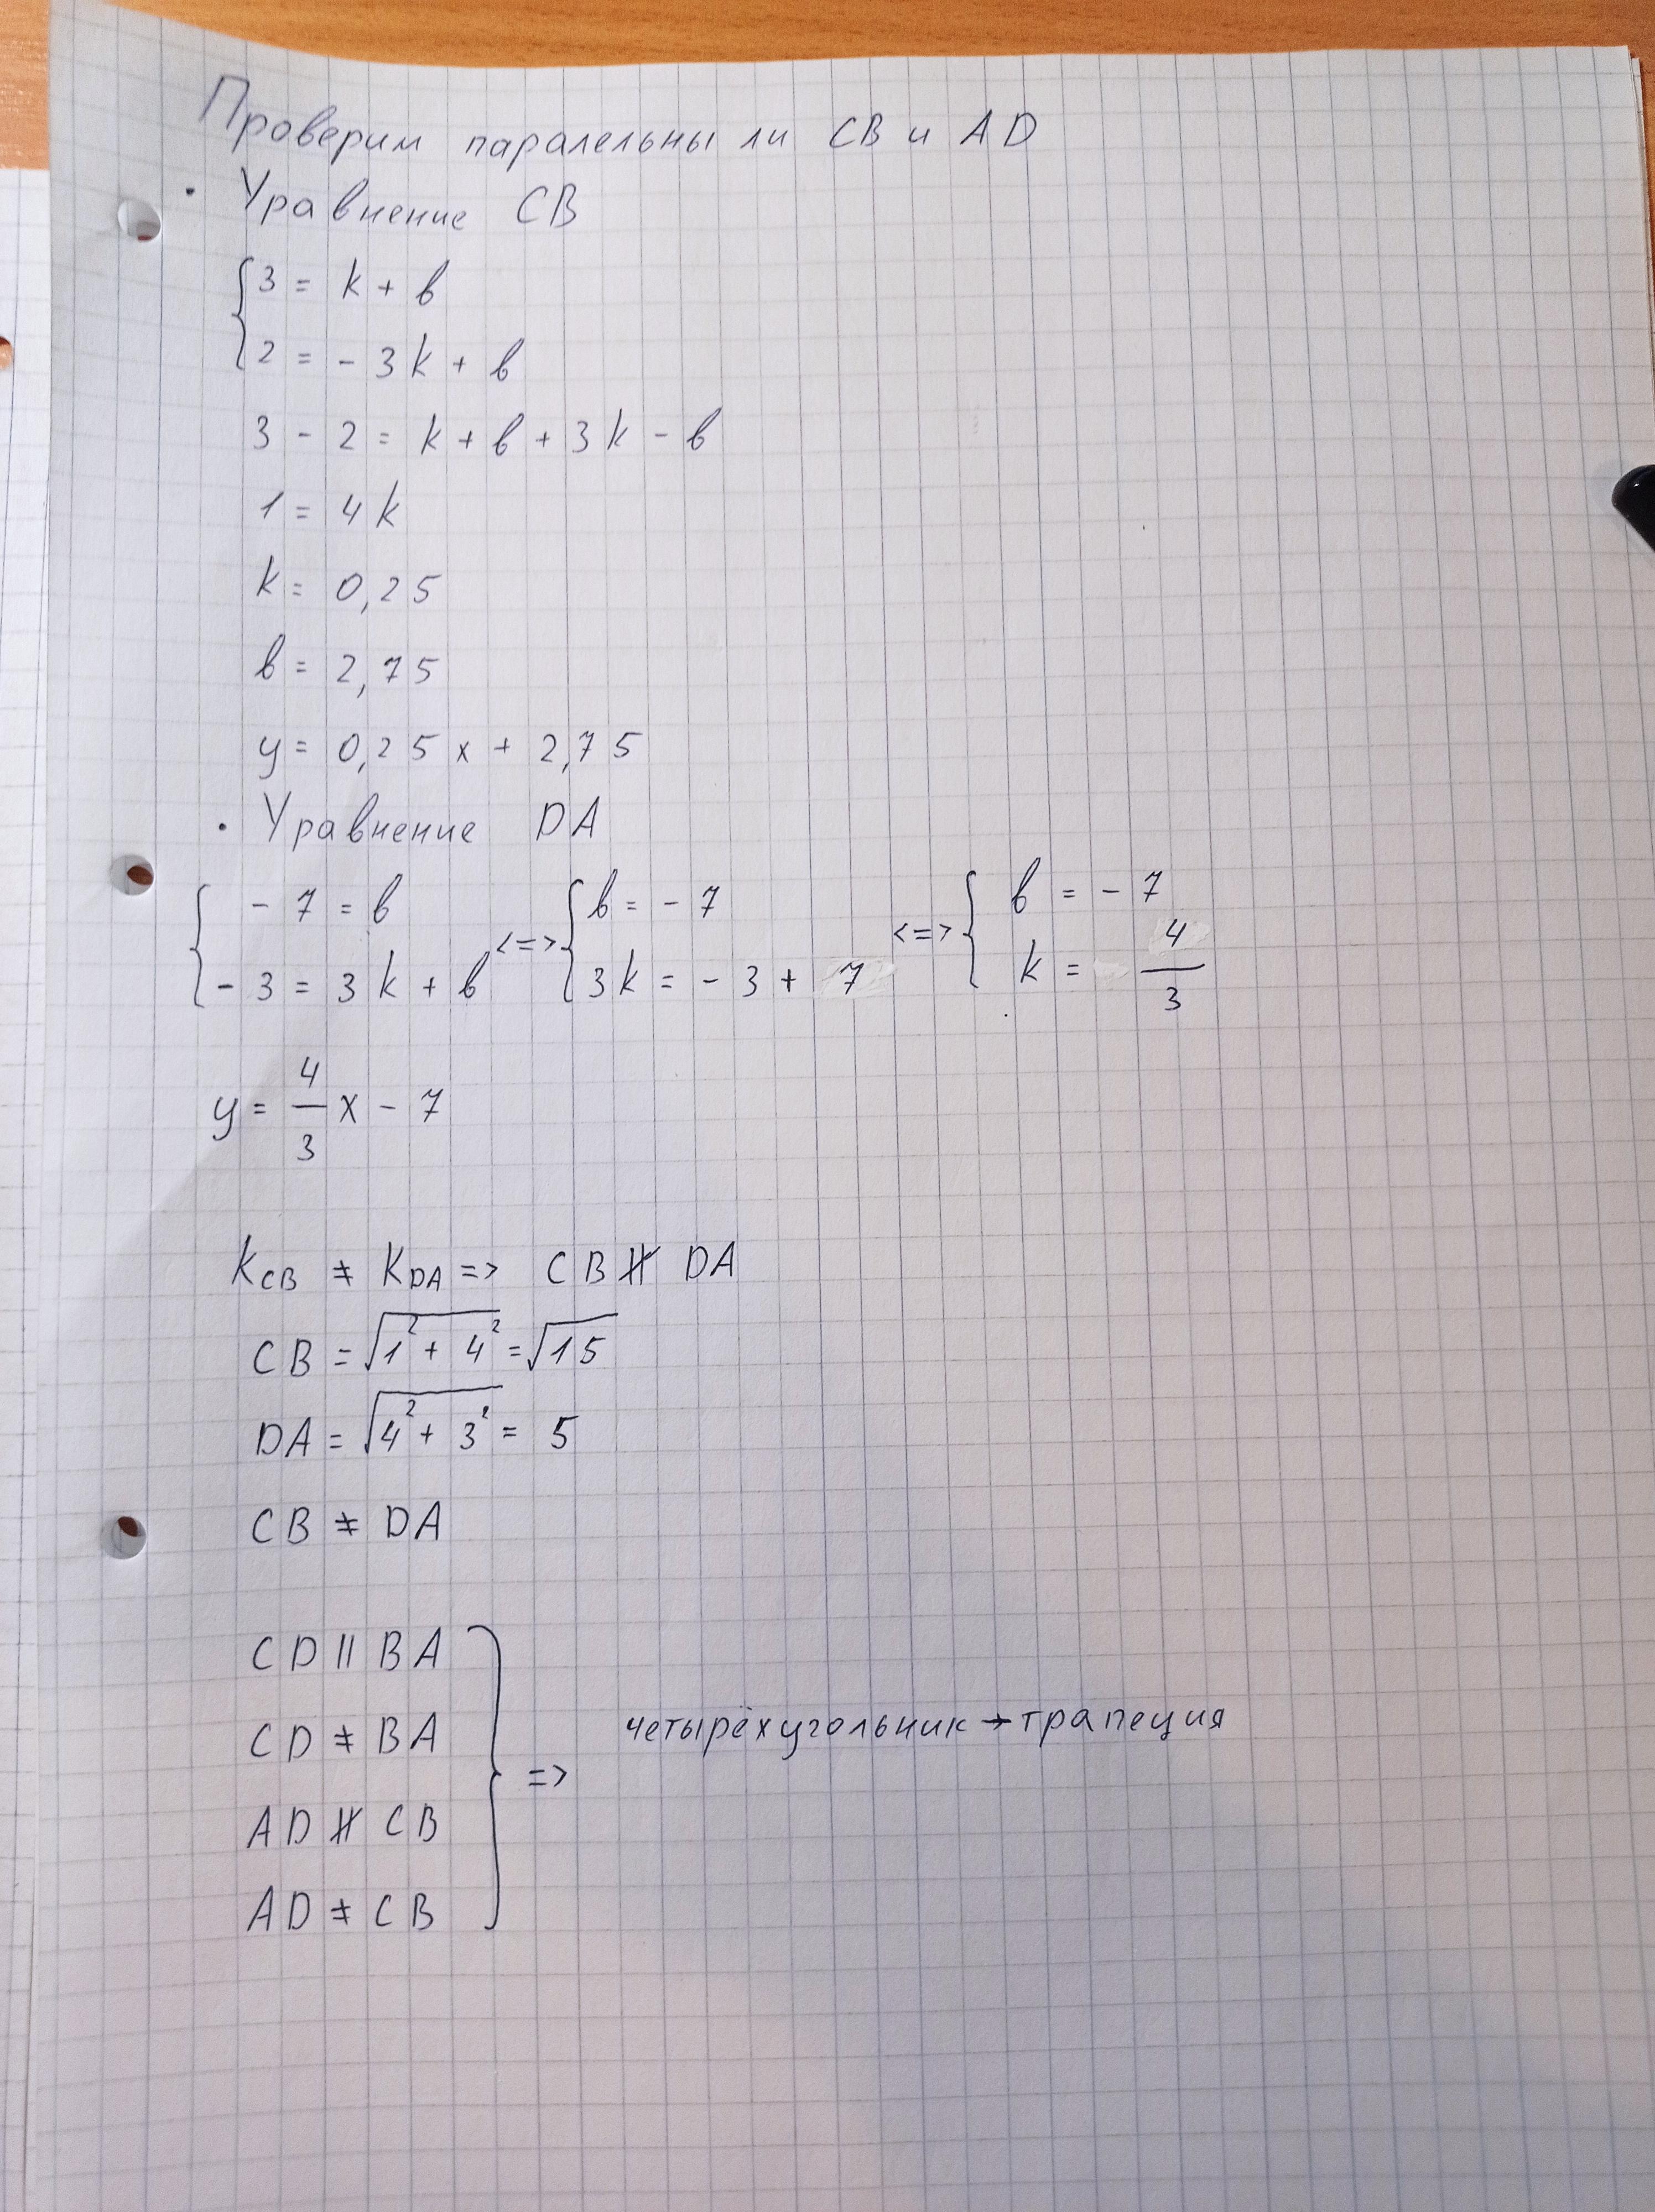 Проверим паралельны ли CB и AD
• Уравнение CB
{ 3 = k + b
{ 2 = - 3k + b
3 - 2 = k + b + 3k - b
1 = 4k
k = 0,25
b = 2,75
y = 0,25x + 2,75
• Уравнение DA
{ - 7 = b <=> { b = - 7 <=> { b = - 7
{ - 3 = 3k + b { 3k = - 3 + 7 { k = 4/3
y = 4/3 x - 7
K_CB ≠ K_DA => CB ∦ DA
CB = √(1² + 4²) = √15
DA = √(4² + 3²) = 5
CB ≠ DA
CD || BA
CD ≠ BA
AD ∦ CB
AD ≠ CB
} => четырёхугольник → трапеция